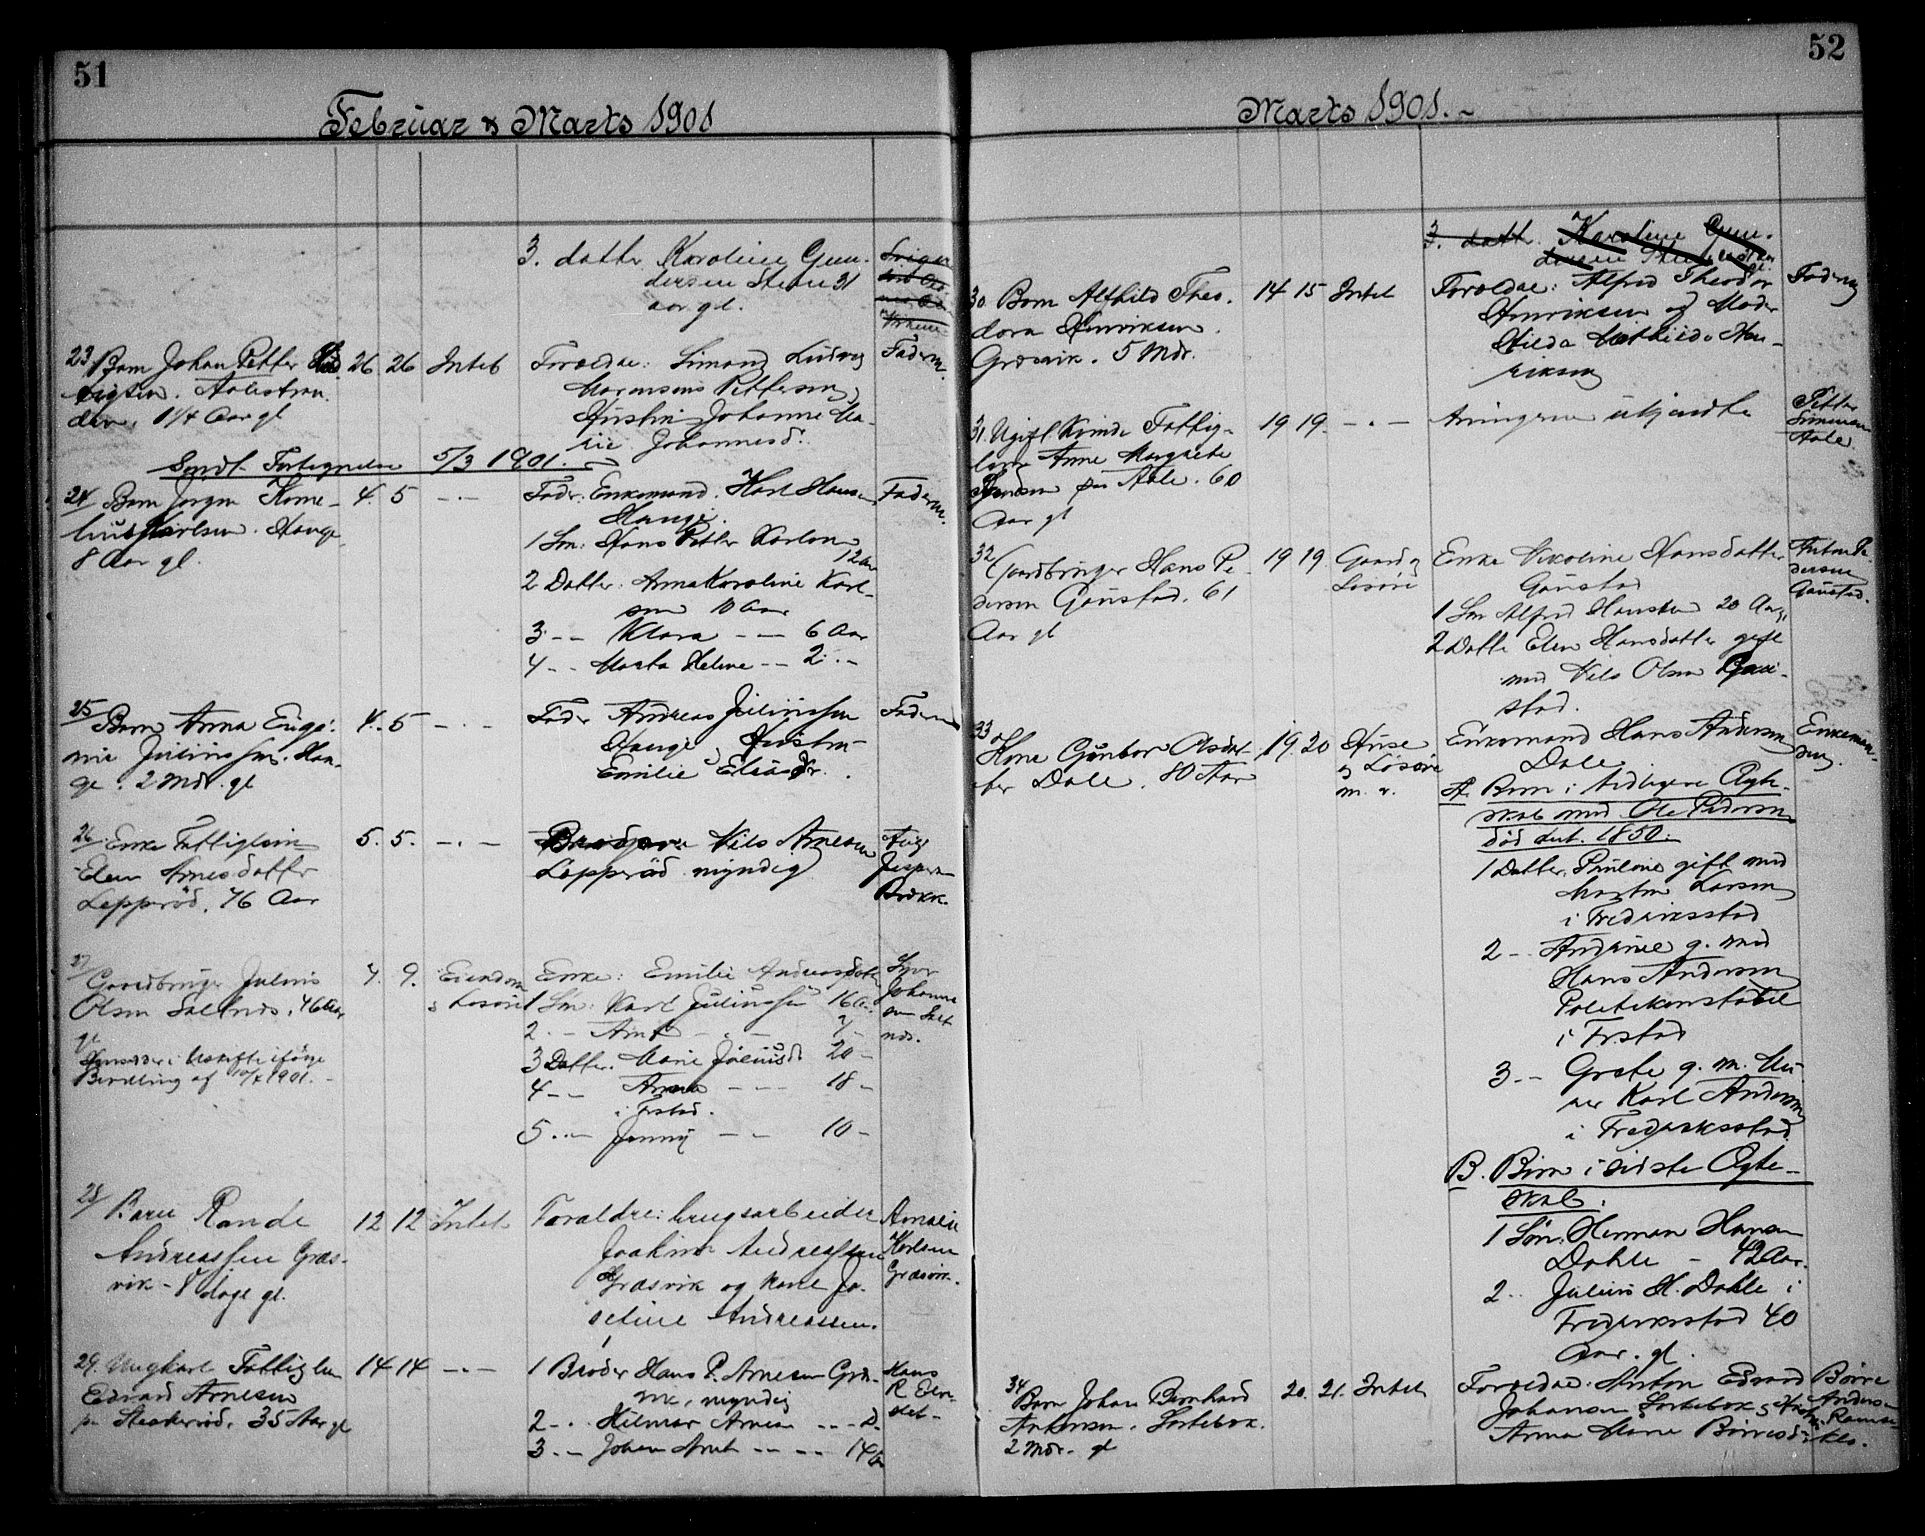 51
Februar & Marts 1901
3. datter Karoline Gun-
dersen Stene 31
aar gl.
23 Barn Johan Petter Lud-
vigsen. Aalestran-
den, 1 1/4 Aar gl
26
26
Intet
Forældre: Simond Ludvig
Pettersen,
Hustru Johanne Ma-
rie Johannesd.
Faderen.
Sendt Fortegnelse 5/3 1901.
24 Barn Jørgen Korne-
lius Karlsen. Hauge,
8 Aar gl.
4.
5
- . -
Fader: Enkemand. Karl Hansen,
Hauge.
1 Søn: Hans Petter Karlsen
12 Aar
2 Datter. Anna Karoline Karl-
sen 10 Aar
3 - - Klara - - 6 Aar
4 - - Marta Helene - - 2 - -
Faderen.
25 Barn Anna Euge-
nie Juliussen. Hau-
ge. 2 Mdr. gl
4.
5
- . -
Fader Andreas Juliussen
Hauge, Hustru
Emilie Eliasdr.
Faderen
26 Enke Fattiglem
Elen Arnesdatter
Lepperød. 76 Aar
5.
5.
- . -
Nils Arnesen
Lepperød myndig
Aug.
Jespersen
Brekke.
27 Gaardbruger Julius
Olsen Saltnes. 46 Aar
gl
Hensidder i Uskifte ifølge
Bevilling af 10/4 1901. -
7.
9.
Eiendom
& Løsøre
Enke: Emilie Andreasdatter
1 Søn: Karl Juliussen 16 Aar
2 - - Arnt - - 7 -
3 Datter. Marie Juliusd. 20 -
4 - - Anna - - 18 -
i Frstad.
5 - - Jenny - - 10 -
Svor
Johanne-
sen Salt-
nes.
28 Barn Rande
Andreassen Græs-
vik - 8 dage gl.
12
12
Intet
Foraldre: brugsarbeider
Joakim Andreassen
Græsvik og kone Jo-
sefine Andreassen.
Amalie
Karlsen
Græsvik.
29. Ungkarl Fattiglem
Edvard Arnesen
35 Aar gl
14
14
- . -
1 Broder Hans P. Arnesen Græ-
myndig
2 - . Hilmar Arnesen - - D.
3 - - Johan Arnt - - - - 14 Aar
Hans
R.
52
Marts 1901. -
3. datter Karoline Gun-
dersen
30 Barn Alfhild Theo-
dora Henriksen.
Græsvik. 5 Mdr.
14
15
Intet
Forældre: Alfred Theodor
Henriksen og Moder
Hilda Mathilda Hen-
riksen
Faderen
31. Ugift Kvinde Fattig-
lem Anne Margrete
paa Aale. 60
Aar gl
19
19.
- . -
Arvingerne ukjendte
Petter
Simensen
Aale
32 Gaardbruger Hans Pe-
dersen Gaustad. 61
Aar gl
19
19.
Gaard og
Løsøre
Enke Nikoline Hansdatter
Gaustad
1 Søn Alfred Hansen 20 Aar
2 Datter Elen Hansdatter gift
med Nils Olsen Gau-
stad.
Anton Pe-
dersen
Gaustad.
33 Kone Gunbor Olsdat-
ter Dale. 80 Aar
19.
20
Huse
og Løsøre
m. v.
Enkemand Hans Andersen
Dale
A. Børn i tidligere Ægte-
skab med Ole Pedersen
død det. 1850.
1 Datter, Pauline gift med
Morten Larsen
i Fredriksstad
2 - Andrine g. med
Hans Andersen
Politikonstabel
i Frstad
3 - - Grete g. m. Mu-
rer Karl Andersen
i Fredriksstad.
B. Børn i sidste Ægte-
skab:
1 Søn. Herman Hansen
Dahle - 42 Aar.
2 - . Julius H. Dahle i
Fredriksstad 40
Aar. gl.
Enkeman-
den.
34 Barn Johan Bernhard
Antonsen. Sortebek.
2 Mdr. gl
20.
21.
Intet
Forældre: Anton Edvard
Johansen Sortebek & Hustru
Anna Marie Børresd.
Børre
Andersen